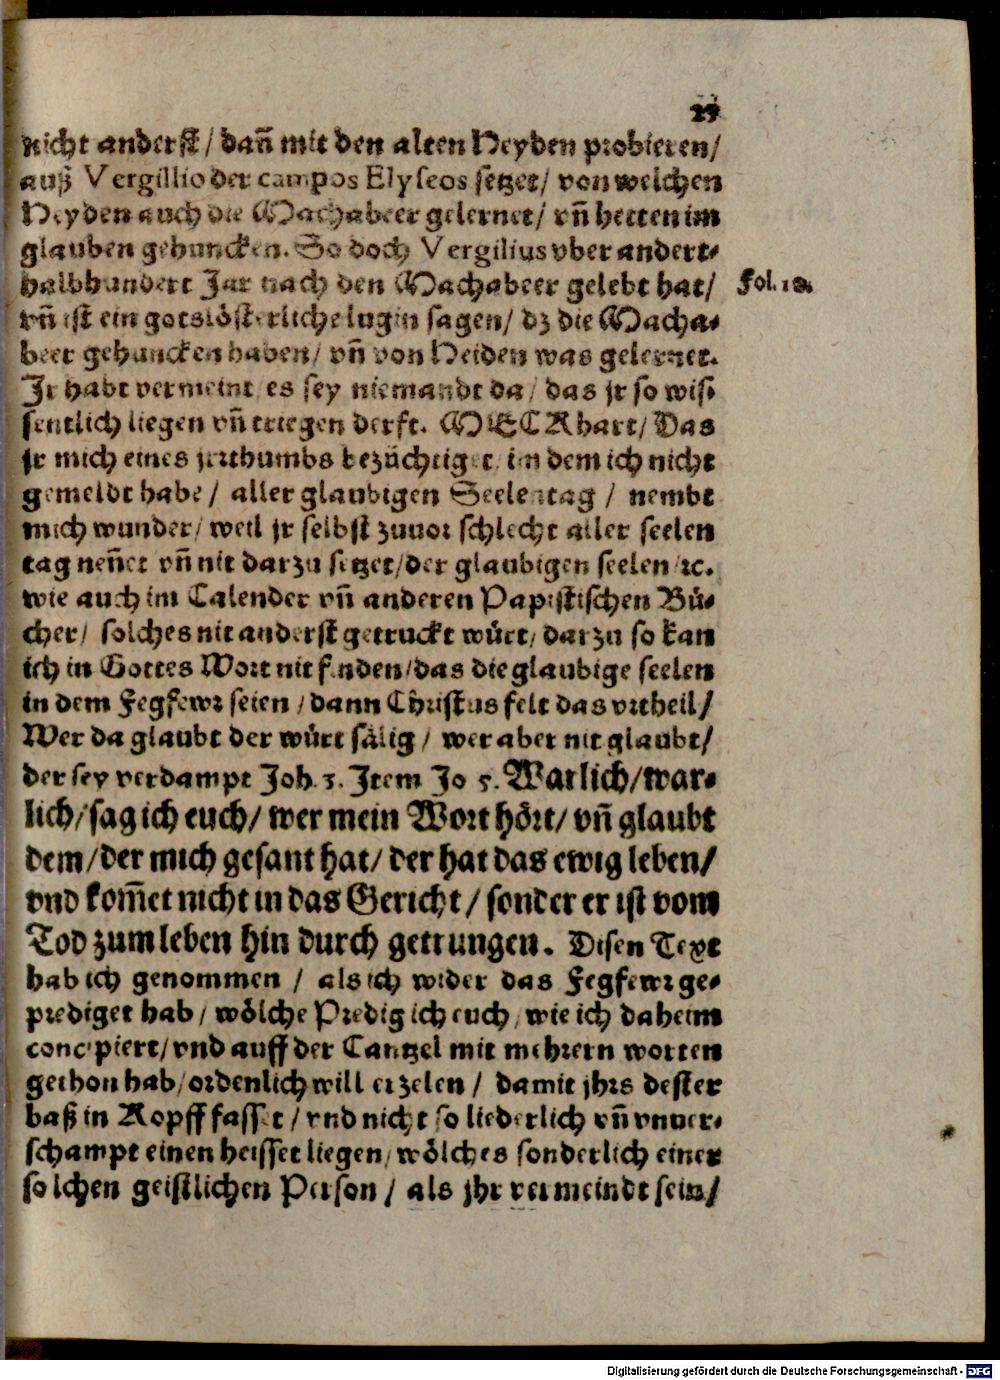 29
nicht anderst / dañ mit den alten Heyden probieren /
auß Vergillio der campos Elyseos setzet / von welchen
Heyden auch die Machabeer gelernet / vñ hetten im
glauben gehuncken. So doch Vergilius vber andert⸗
halbhundert Jar nach den Machabeer gelebt hat /
Fol. 18.
vñ ist ein gotslösterliche lugin sagen / dz die Macha⸗
beer gehuncken haben / vñ von Heiden was gelernet.
Jr habt vermeint / es sey niemandt da / das jr so wis⸗
sentlich liegen vñ triegen derft. MECKhart / Das
jr mich eines jrrthumbs bezüchtiget / in dem ich nicht
gemeldt habe / aller glaubigen Seelen tag / nembt
mich wunder / weil jr selbst zuuor schlecht aller seelen
tag neñet vñ nit darzu setzet / der glaubigen seelen ꝛc.
wie auch im Calender vñ anderen Papistischen Bü⸗
cher / solches nit anderst getruckt würt / darzu so kan
ich in Gottes Wort nit finden / das die glaubige seelen
in dem Fegfewr seien / dann Christus felt das vrtheil /
Wer da glaubt der würt sälig / wer aber nit glaubt /
der sey verdampt Joh. 3. Item Jo 5. Warlich / war⸗
lich / sag ich euch / wer mein Wort hört / vñ glaubt
dem / der mich gesant hat / der hat das ewig leben /
vnd kom̃et nicht in das Gericht / sonder er ist vom
Tod zum leben hin durch getrungen. Disen Text
hab ich genommen / als ich wider das Fegfewr ge⸗
prediget hab / wölche Predig ich euch / wie ich daheim
concipiert / vnd auff der Cantzel mit mehrern worten
gethon hab / ordenlich will erzelen / damit jhrs dester
baß in Kopff fasset / vnd nicht so liederlich vñ vnuer⸗
schampt einen heisset liegen / wölches sonderlich einer
solchen geistlichen Person / als jhr vermeindt sein /
Digitalisierung gefördert durch die Deutsche Forschungsgemeinschaft - DFG